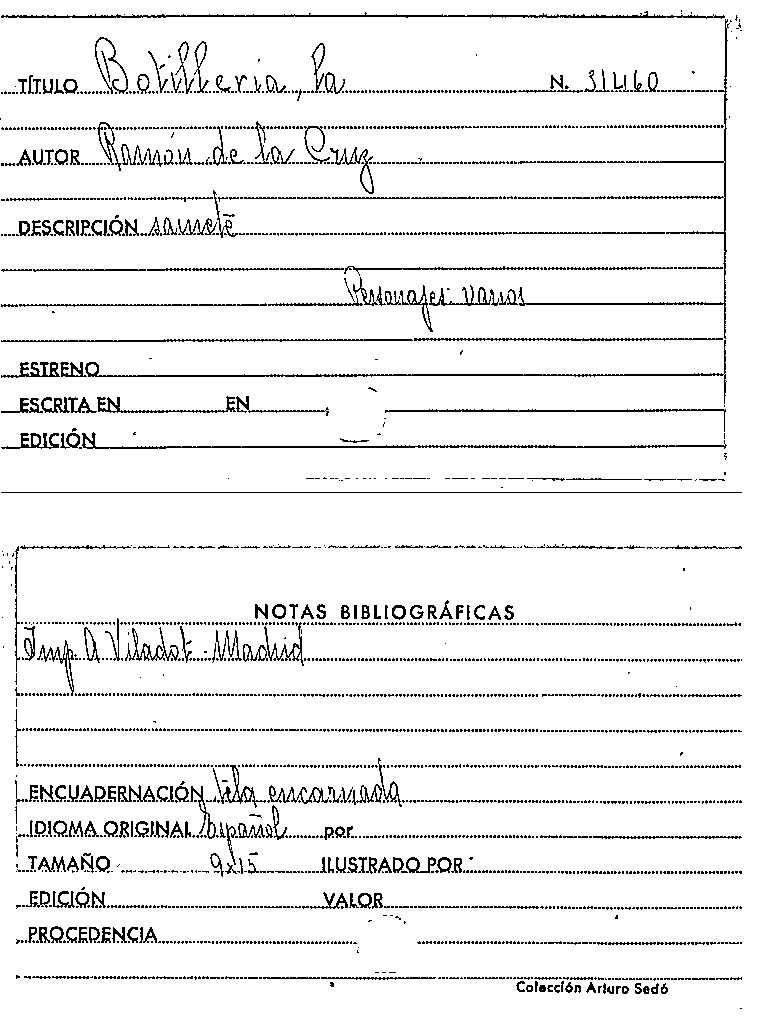 TÍTULO Botilleria, la N. 31460
AUTOR Ramón de la Cruz
DESCRIPCIÓN sainete
Personajes: varios
ESTRENO
ESCRITA EN EN
EDICIÓN
NOTAS BIBLIOGRÁFICAS
Imp. A Viladot - Madrid
ENCUADERNACIÓN tela encarnada
IDIOMA ORIGINAL Español por
TAMAÑO 9x15 ILUSTRADO POR
EDICIÓN VALOR
PROCEDENCIA
Colección Arturo Sedó